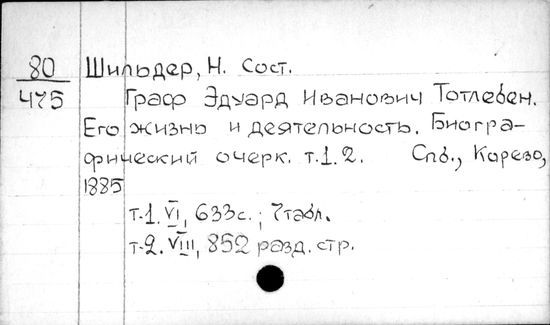 80 Шильдер, Н. Сост.
475 Граф Эдуард Иванович Тотлебен.
Его жизнь и деятельность. Биогра-
фический очерк. т.1.2. Спб.,
1885
т.1. VI, 633с.; 7табл.
т.2. VIII, 852 разд. стр.